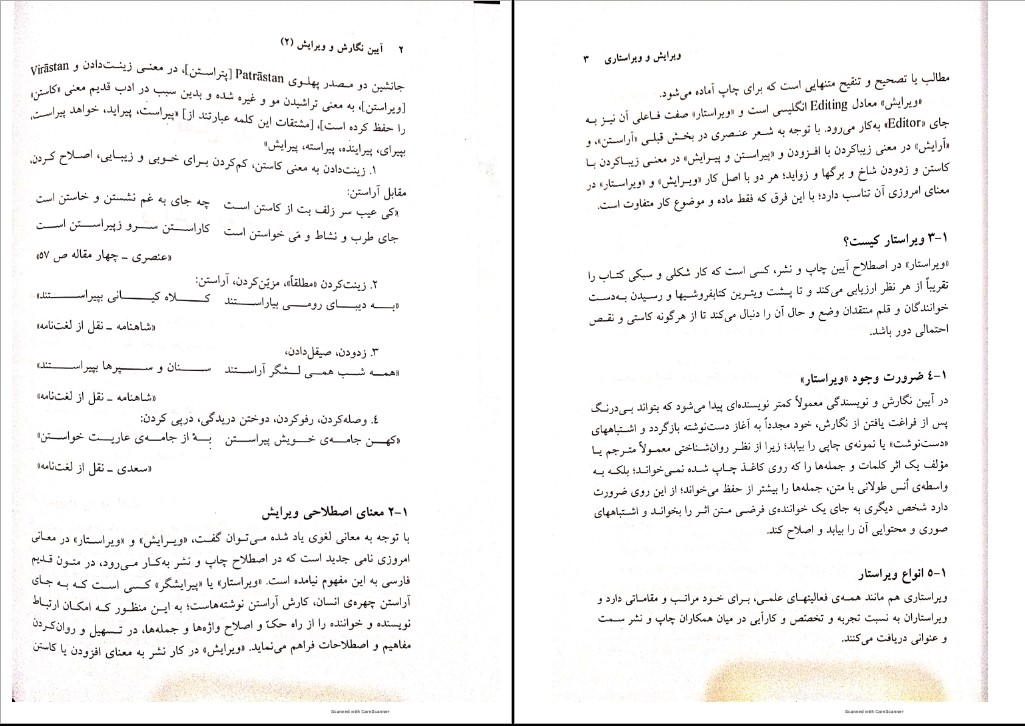 ۲ آیین نگارش و ویرایش (۲)
جانشین دو مصدر پهلوی Patrāstan [پتراستن]، در معنی زینت‌دادن و Virāstan
[ویراستن]، به معنی تراشیدن مو و غیره شده و بدین سبب در ادب قدیم معنی «کاستن»
را حفظ کرده است]، [مشتقات این کلمه عبارتند از] «پیراست، پیراید، خواهد پیراست،
بپیرای، پیراینده، پیراسته، پیرایش»
۱. زینت‌دادن به معنی کاستن، کم‌کردن برای خوبی و زیبایی، اصلاح کردن،
مقابل آراستن:
«کی عیب سر زلف بت از کاستن است چه جای به غم نشستن و خاستن است
جای طرب و نشاط و می خواستن است کاراستن سرو زپیراستن است
«عنصری ـ چهار مقاله ص ۵۷»
۲. زینت‌کردن «مطلقاً»، مزیّن‌کردن، آراستن:
«به دیبای رومی بیاراستند کلاه کیانی بپیراستند»
«شاهنامه ـ نقل از لغت‌نامه»
۳. زدودن، صیقل‌دادن،
«همه شب همی لشگر آراستند سنان و سپرها بپیراستند»
«شاهنامه ـ نقل از لغت‌نامه»
۴. وصله‌کردن، رفوکردن، دوختن دریدگی، درپی کردن:
«کهن جامه‌ی خویش پیراستن به از جامه‌ی عاریت خواستن»
«سعدی ـ نقل از لغت‌نامه»
۱-۲ معنای اصطلاحی ویرایش
با توجه به معانی لغوی یاد شده می‌توان گفت، «ویرایش» و «ویراستار» در معانی
امروزی نامی جدید است که در اصطلاح چاپ و نشر به‌کار می‌رود، در متون قدیم
فارسی به این مفهوم نیامده است. «ویراستار» یا «پیرایشگر» کسی است که به جای
آراستن چهره‌ی انسان، کارش آراستن نوشته‌هاست؛ به این منظور که امکان ارتباط
نویسنده و خواننده را از راه حکّ و اصلاح واژه‌ها و جمله‌ها، در تسهیل و روان‌کردن
مفاهیم و اصطلاحات فراهم می‌نماید. «ویرایش» در کار نشر به معنای افزودن یا کاستن
Scanned with CamScanner
ویرایش و ویراستاری ۳
مطالب یا تصحیح و تنقیح متنهایی است که برای چاپ آماده می‌شود.
«ویرایش» معادل Editing انگلیسی است و «ویراستار» صفت فاعلی آن نیز به
جای «Editor» به‌کار می‌رود. با توجه به شعر عنصری در بخش قبلی «آراستن»، و
«آرایش» در معنی زیباکردن با افزودن و «پیراستن و پیرایش» در معنی زیباکردن با
کاستن و زدودن شاخ و برگها و زواید؛ هر دو با اصل کار «ویرایش» و «ویراستار» در
معنای امروزی آن تناسب دارد؛ با این فرق که فقط ماده و موضوع کار متفاوت است.
۱-۳ ویراستار کیست؟
«ویراستار» در اصطلاح آیین چاپ و نشر، کسی است که کار شکلی و سبکی کتاب را
تقریباً از هر نظر ارزیابی می‌کند و تا پشت ویترین کتابفروشیها و رسیدن به‌دست
خوانندگان و قلم منتقدان وضع و حال آن را دنبال می‌کند تا از هرگونه کاستی و نقص
احتمالی دور باشد.
۱-۴ ضرورت وجود «ویراستار»
در آیین نگارش و نویسندگی معمولاً کمتر نویسنده‌ای پیدا می‌شود که بتواند بی‌درنگ
پس از فراغت یافتن از نگارش، خود مجدداً به آغاز دست‌نوشته بازگردد و اشتباههای
«دست‌نوشت» یا نمونه‌ی چاپی را بیابد؛ زیرا از نظر روان‌شناختی معمولاً مترجم یا
مؤلف یک اثر کلمات و جمله‌ها را که روی کاغذ چاپ شده نمی‌خواند؛ بلکه به
واسطه‌ی اُنس طولانی با متن، جمله‌ها را بیشتر از حفظ می‌خواند؛ از این روی ضرورت
دارد شخص دیگری به جای یک خواننده‌ی فرضی متن اثر را بخواند و اشتباههای
صوری و محتوایی آن را بیابد و اصلاح کند.
۱-۵ انواع ویراستار
ویراستاری هم مانند همه‌ی فعالیتهای علمی، برای خود مراتب و مقاماتی دارد و
ویراستاران به نسبت تجربه و تخصّص و کارآیی در میان همکاران چاپ و نشر سمت
و عنوانی دریافت می‌کنند.
Scanned with CamScanner